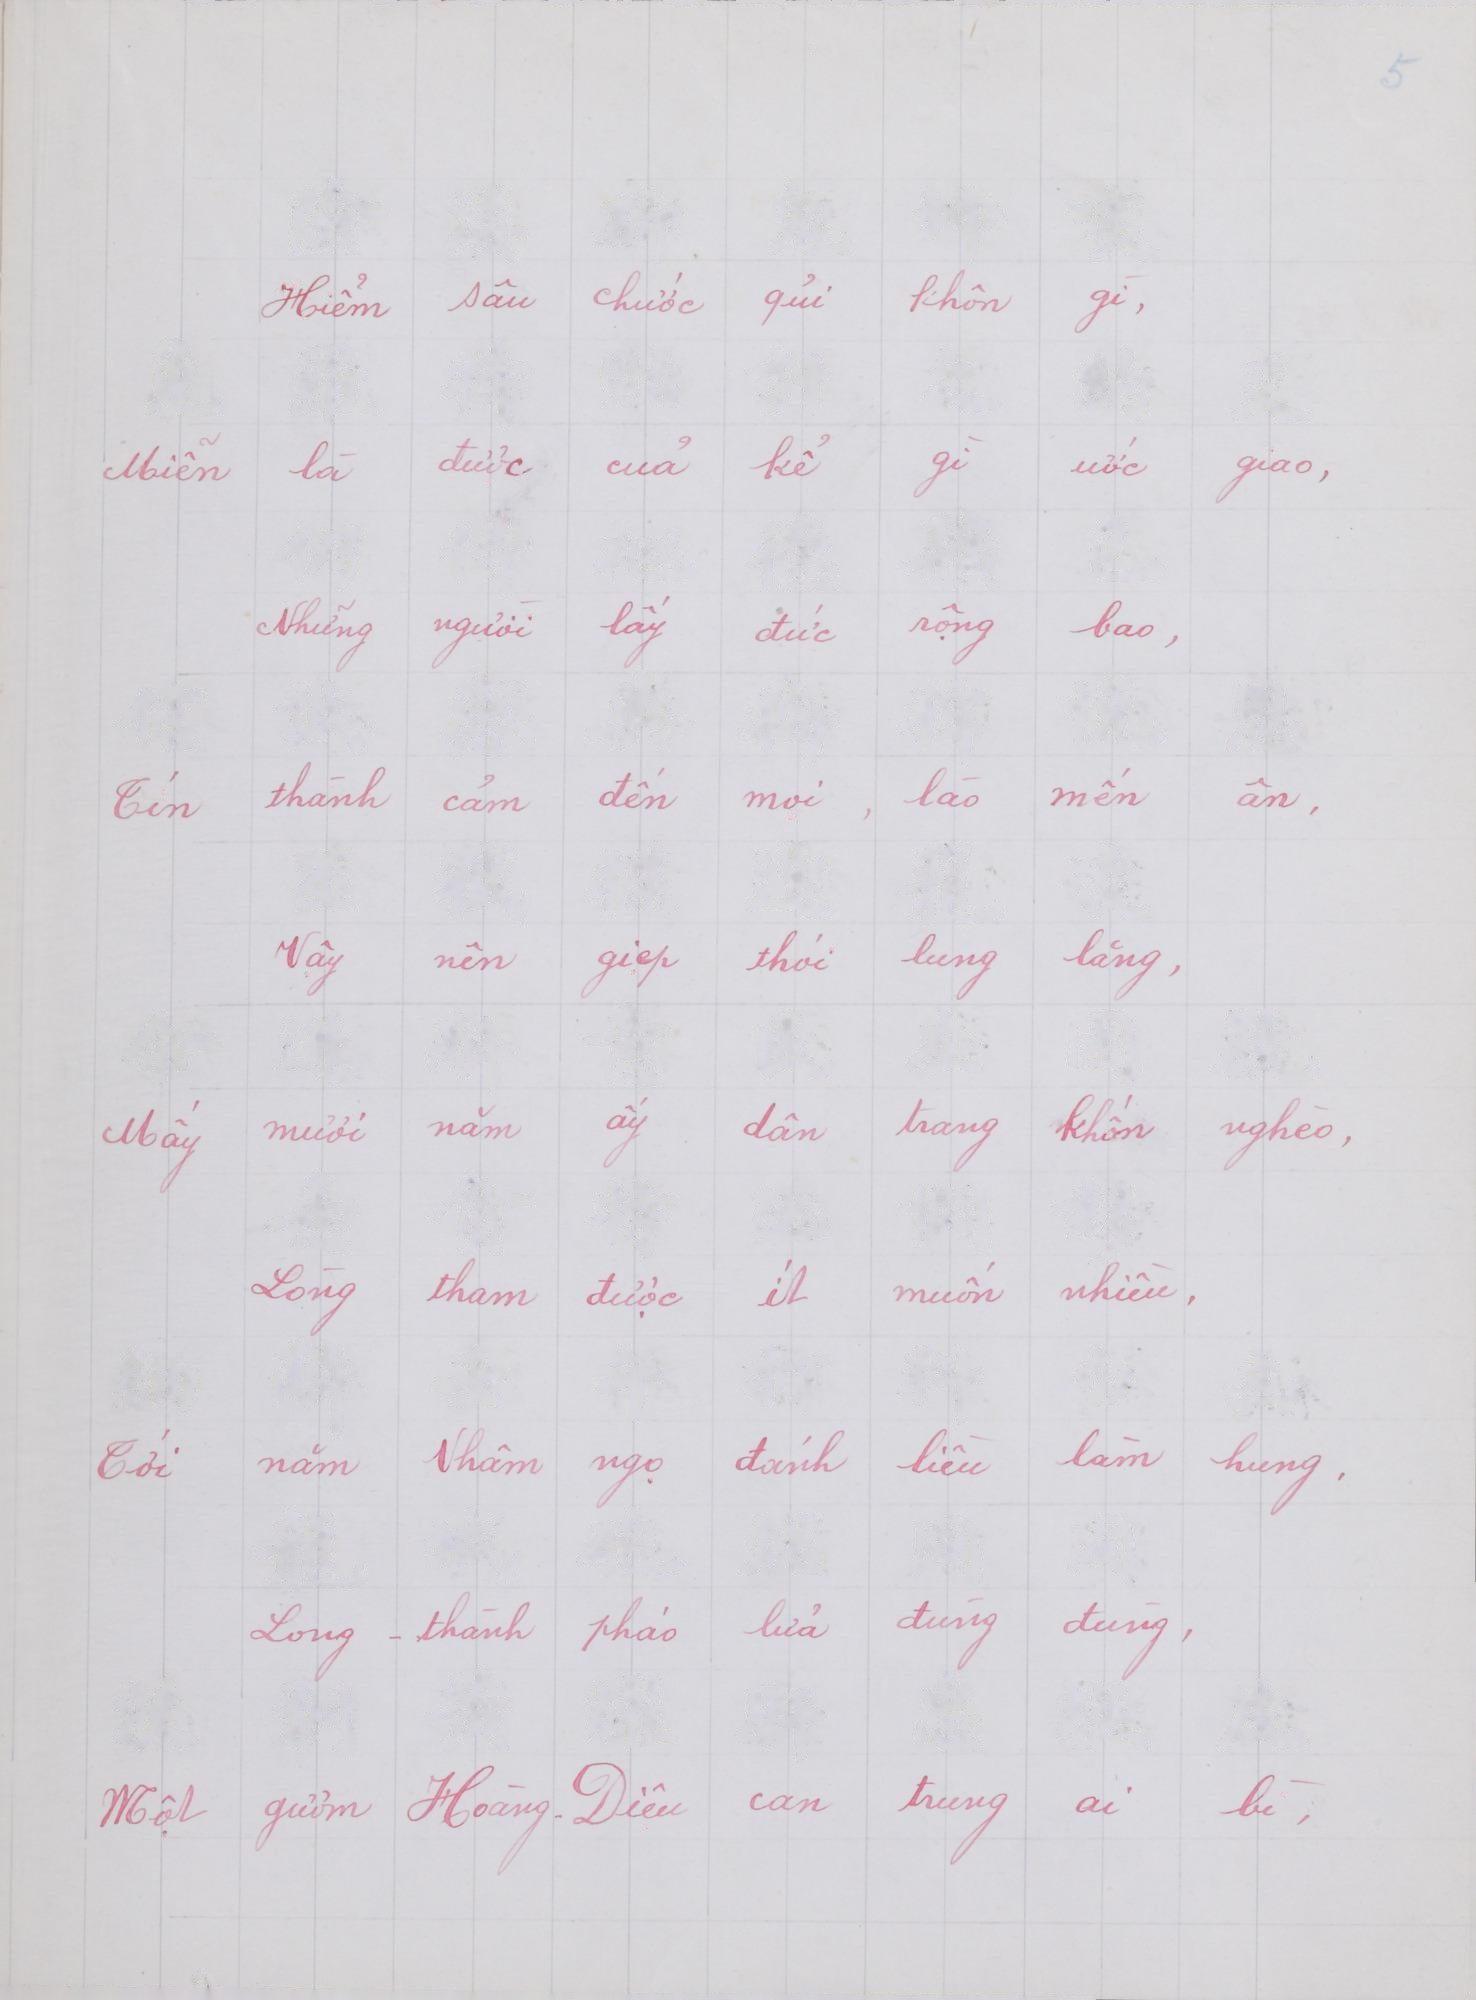 5
Hiểm sâu chước qủi khôn gì,
Miễn là được cuả kể gì ước giao,
Những người lấy đức rộng bao,
Tín thành cảm đến mọi, lào mến ân,
Vậy nên giẹp thói lung lăng,
Mấy mươi năm ấy dân trang khốn nghèo,
Lòng tham được ít muốn nhiều,
Tới năm Nhâm ngọ đánh liều làm hung,
Long-thành pháo lửa đùng đùng,
Một gươm Hoàng-Diệu can trung ai bì,